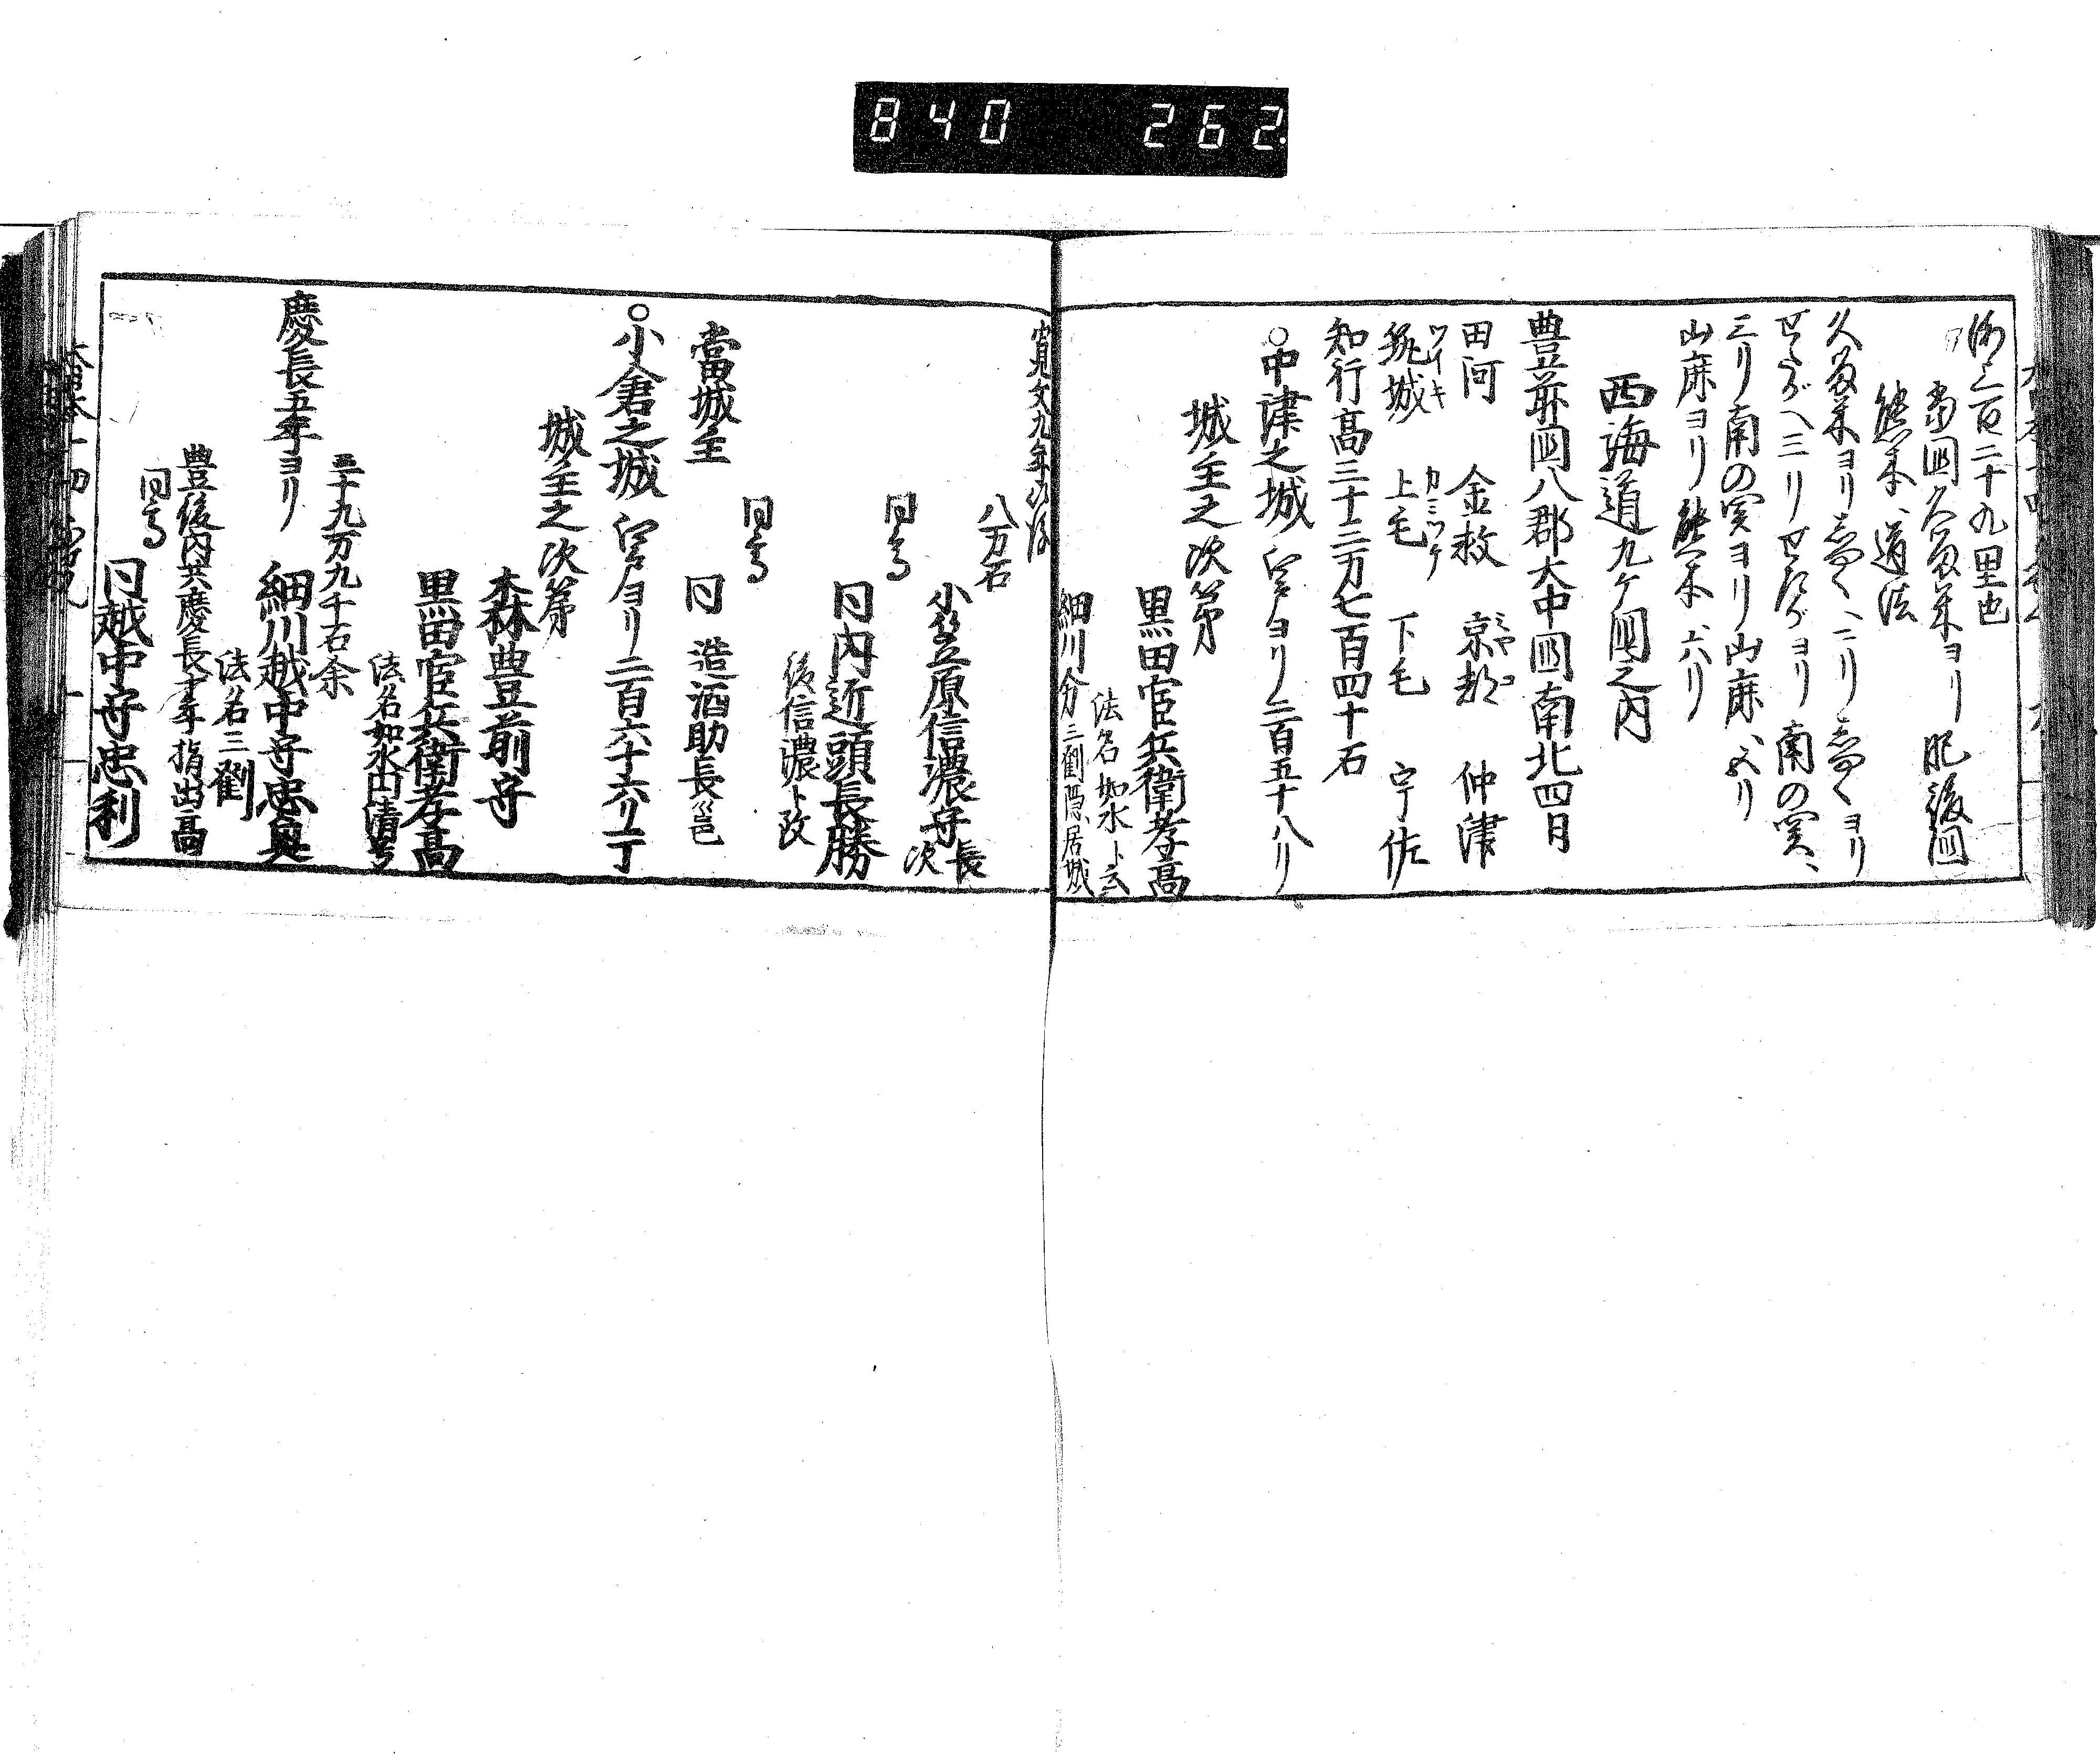 840 262
二百二十九里也
當國久留米ヨリ肥後國
熊本道法
三リ南の関ヨリ山鹿
山鹿ヨリ熊本六リ
西海道九ケ國之内
豊前國八郡大中國南北四日
田河 金救 京都 仲津
筑城 上毛 下毛 宇佐
知行高三十三万七百四十石
○中津之城 江戸ヨリ二百五十八リ
城主之次第
黒田官兵衛孝高
法名如水ト云
細川分三劉隠居城
寛文九年
八万石
小笠原信濃守長次
同高
同内近頭長勝
後信濃ト改
同高
當城主 同 造酒助長邕
○小倉之城 江戸ヨリ二百六十六リ丁
城主之次第
森豊前守
黒田官兵衛孝高
法名如水円清号
三十九万九千石余
慶長五年ヨリ 細川越中守忠興
法名三劉
豊後内共慶長十年指出高
同高
同越中守忠利